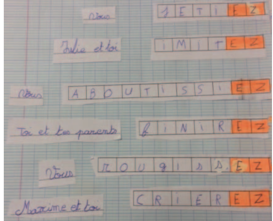 Vous JETIEZ
Julie et toi IMITEZ
Vous ABOUTISSIEZ
Toi et tes parents FINIREZ
Vous ROUGISSEZ
Maxime et toi CRIEREZ